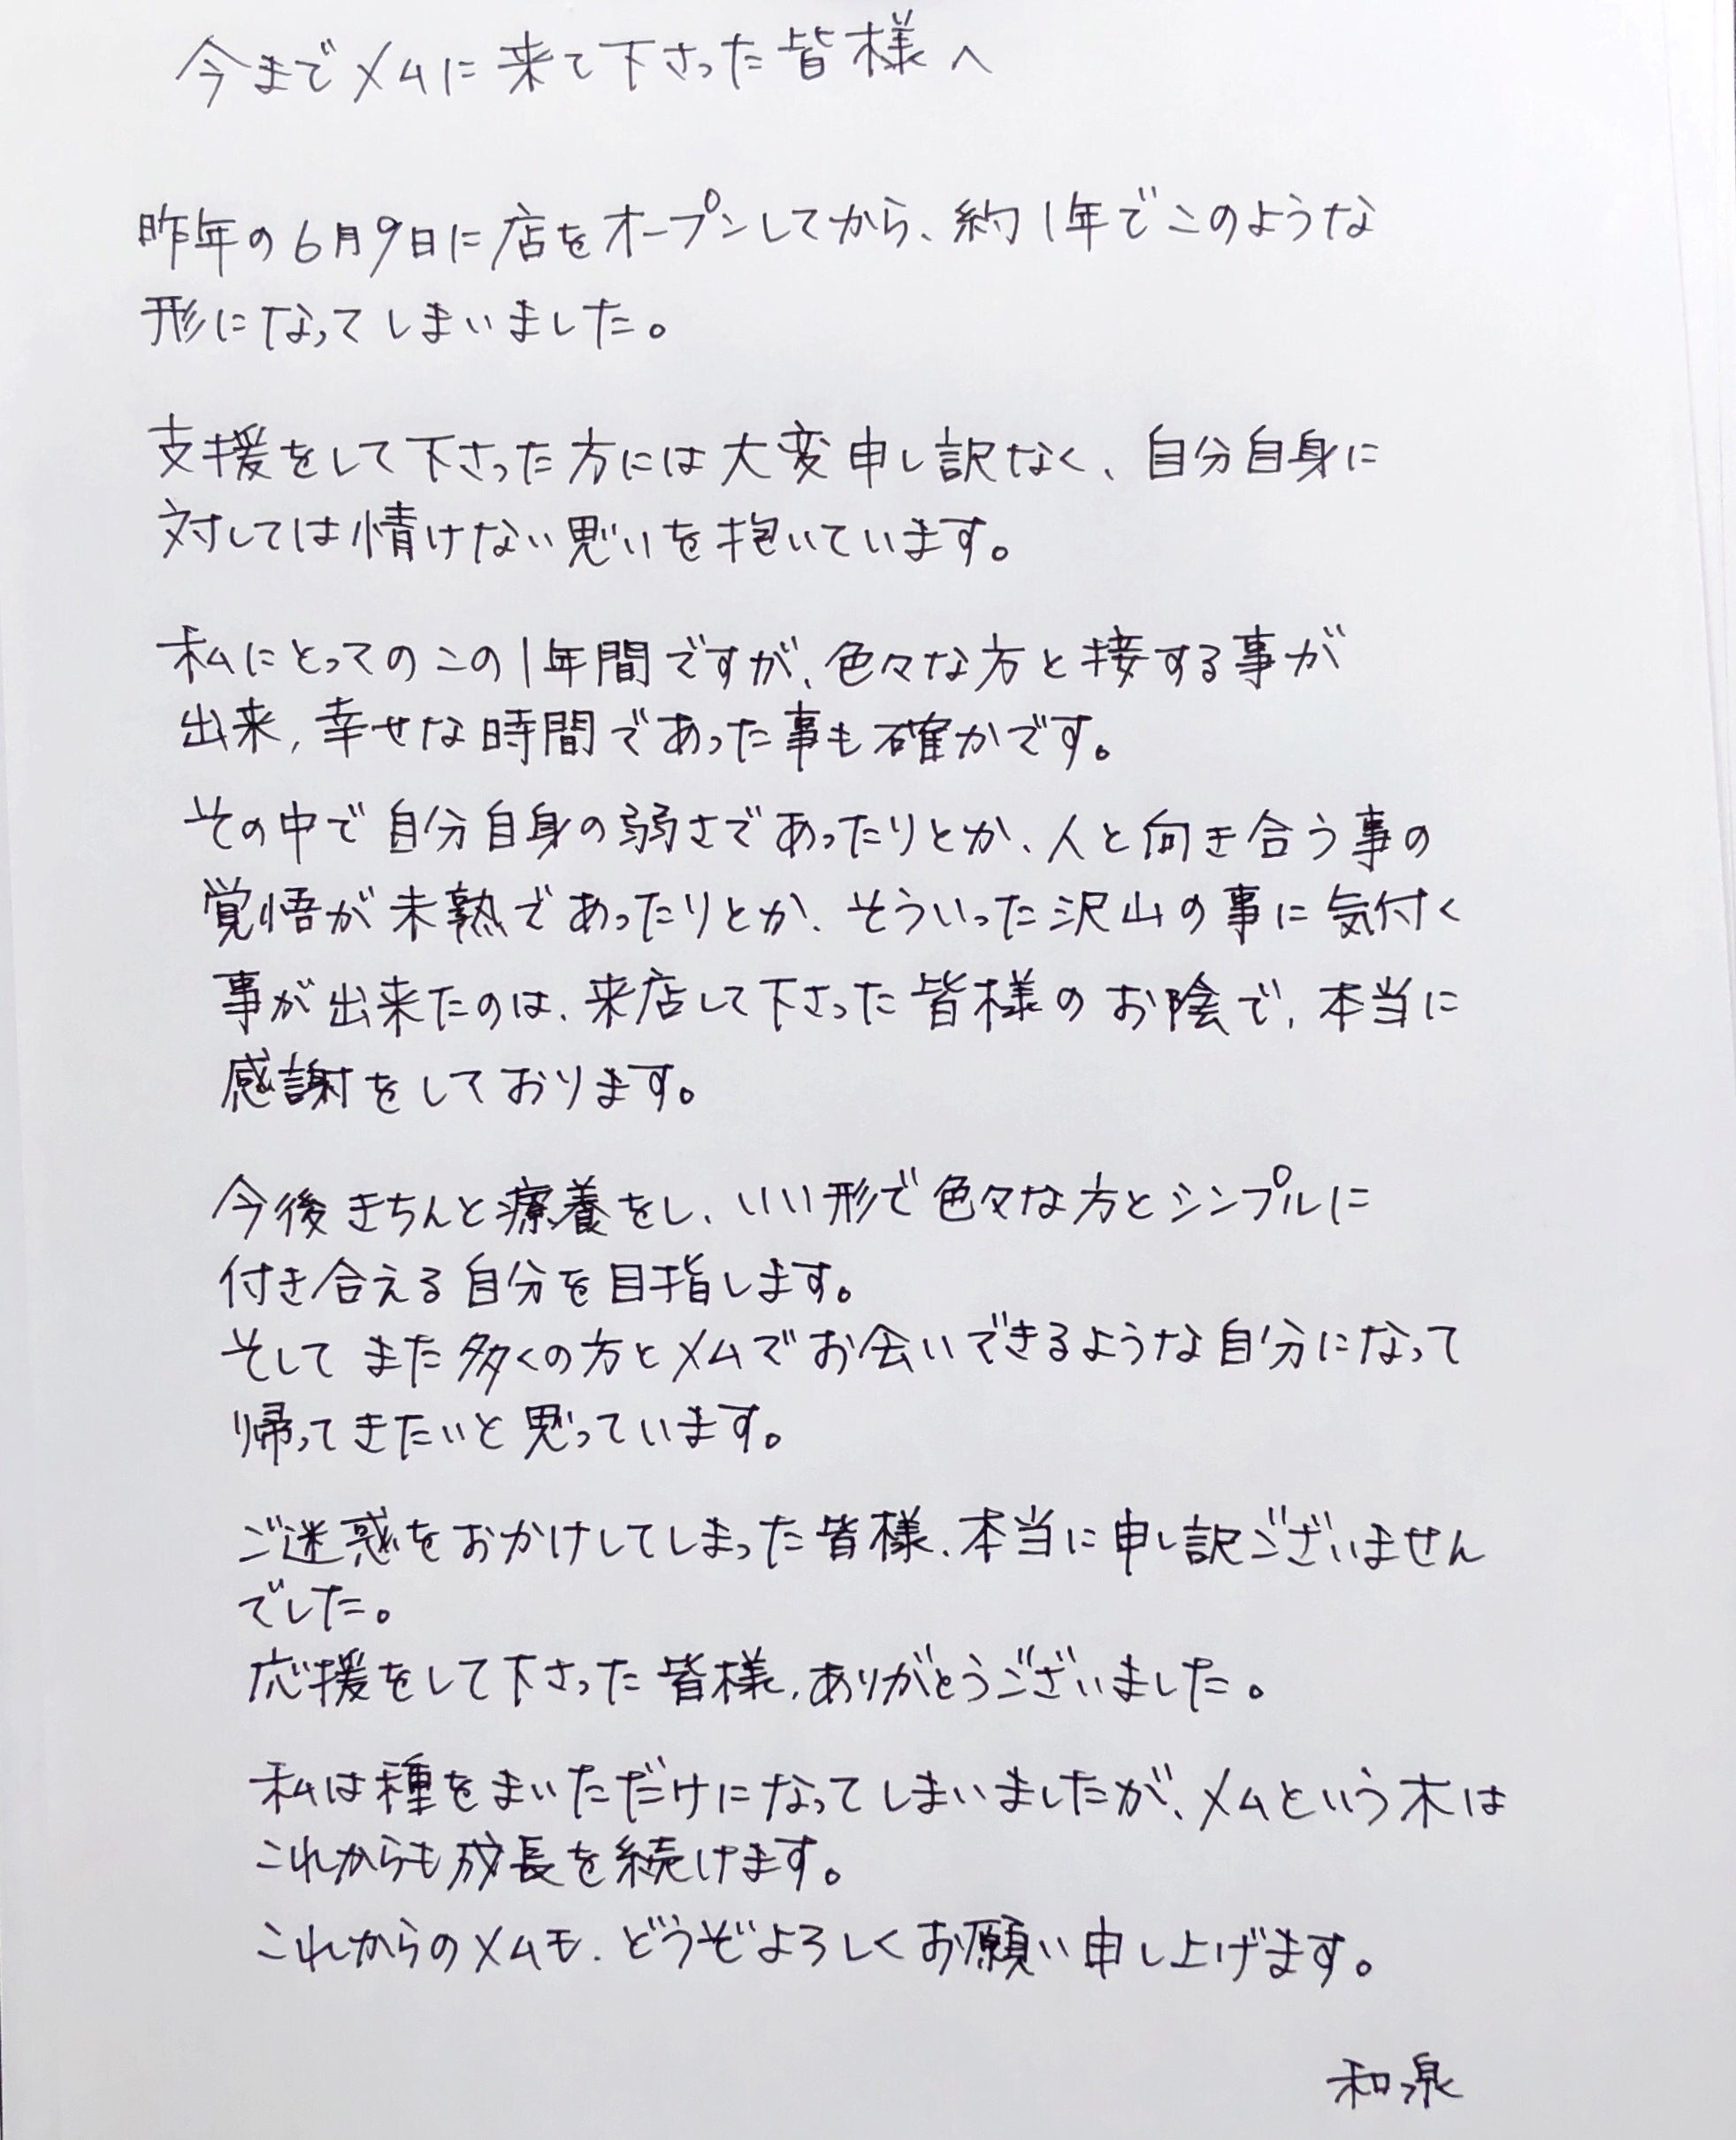 今までメムに来て下さった皆様へ
昨年の6月9日に店をオープンしてから、約1年でこのような
形になってしまいました。
支援をして下さった方には大変申し訳なく、自分自身に
対しては情けない思いを抱いています。
私にとってのこの1年間ですが、色々な方と接する事が
出来、幸せな時間であった事も確かです。
その中で自分自身の弱さであったりとか、人と向き合う事の
覚悟が未熟であったりとか、そういった沢山の事に気付く
事が出来たのは、来店して下さった皆様のお陰で、本当に
感謝をしております。
今後きちんと療養をし、いい形で色々な方とシンプルに
付き合える自分を目指します。
そしてまた多くの方とメムでお会いできるような自分になって
帰ってきたいと思っています。
ご迷惑をおかけしてしまった皆様、本当に申し訳ございません
でした。
応援をして下さった皆様、ありがとうございました。
私は種をまいただけになってしまいましたが、メムという木は
これからも成長を続けます。
これからのメムも、どうぞよろしくお願い申し上げます。
和泉